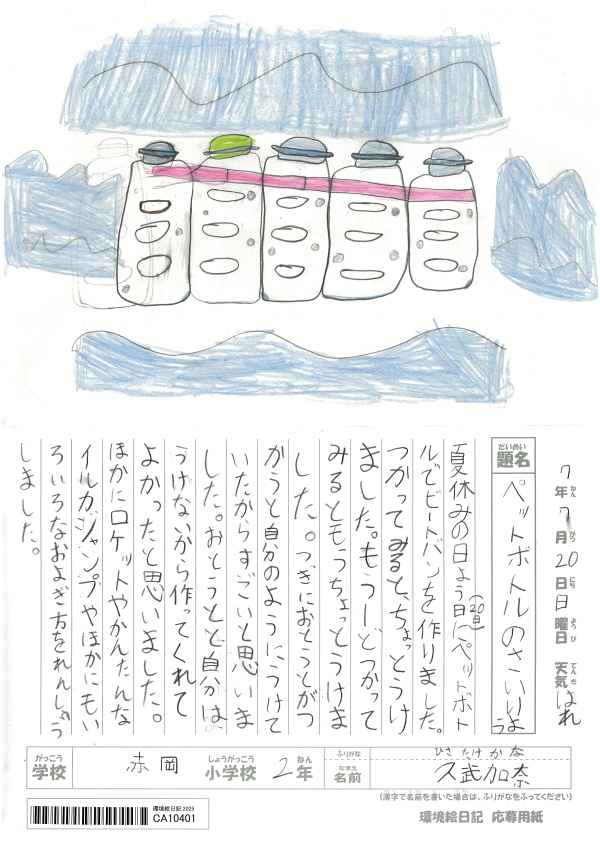 7年7月20日日曜日 天気はれ
ねん がつ にち ようび てんき
だいめい
題名 ペットボトルのさいりよう
夏休みの日よう日(20日)にペットボト
ルでビートバンを作りました。
つかってみると、ちょっとうけ
ました。もう一どつかって
みるともうちょっとうけま
した。つぎにおとうとがつ
かうと自分のようにうけて
いたからすごいと思いま
した。おとうとと自分は
うけないから作ってくれて
よかったと思いました。
ほかにロケットやかんたんな
イルカジャンプやほかにもい
ろいろなおよぎ方をれんしゅう
しました。
がっこう しょうがっこう ねん
学校 赤岡 小学校 2年
ふりがな ひさ たけ か な
なまえ
名前 久武加奈
(漢字で名前を書いた場合は、ふりがなをふってください)
環境絵日記 応募用紙
環境絵日記 2025
CA10401